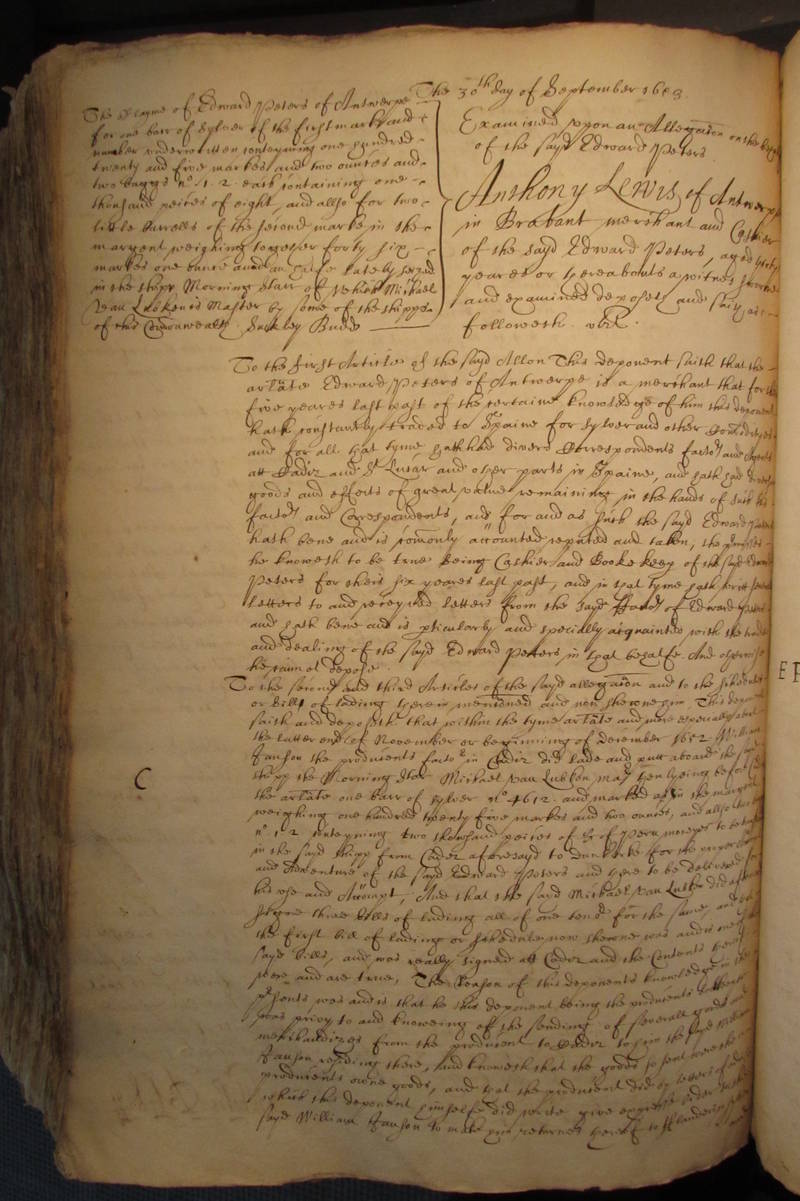 The Clayme of Edward Peters of Antwerpe
for one barr of sylver of the first marke and
number underwritten conteyning one hundred
twenty and five markes and two ounces and
two baggs no. 1. 2 each containing one
thousand peices of eight, and allso for two
little barrells of the second marke in the
margent weighing together forty six
markes one ounce and an
in the shipp Morning Starr of which Michael
van Lubken is Master by some of the shipps
of this Commonwealth Suckley Budd
The 30th day of September 1653
Examined upon an Allegation on the behalfe
of the sayd Edward Peters
Anthony Lewis of Antwerpe
in Brabant merchant and Cashier
of the sayd Edward Peters, aged thirty
yeares or thereabouts a witnes sworne
and examined deposeth and saith as
followeth. vizt.
To the first Article of the sayd Allon This deponent saith that the
arlate Edward Peters of Antwerpe is a merchant that for the
five yeares last past of the certaine knowledge of him this deponent
hath constantly traded to Spaine for sylver and other
and for all that tyme hath had divers Correspondents factors and Agents
att Cadiz and St Lucar and other parts in Spaine, and hath had divers
goods and effects of great value remaining in the hands of such his
factors and Correspondents, and for and as such the sayd Edward Peters
hath bene and is comonly accounted reputed and taken, the premisses
he knoweth to be true being Cashier and Booke keeper of the sayd Edward
Peters for theis six yeares last past, and in that tyme hath writt severall
letters to and receyved letters from the sayd factors of Edward Peters
and hath bene and is pticularly and specially acquainted with the trade
and dealing of the sayd Edward Peters in that behalfe. And otherwise
he cannot depose.
To the second and third Articles of the sayd allegation and to the schedule
or bill of lading therein mentioned and now shewne him This deponent
saith and deposeth that within the tyme arlate and more especially about
the latter end of November or beginning of December 1652 William
Janson the producents factor in Cadiz did lade and putt aboard the sayd
shipp the Morning Starr Michael van Lubken master then lyeing before
the arlate one barr of sylver no. 4612. and marked as in the margent
weighing one hundred twenty five markes and two ounces, and allso two baggs
no. 1. 2 conteyning two thousand peices of 8/8 of Peru moneyes to be
in the sayd shipp from Cadiz aforesayd to Dunkirke for the proper
and Adventure of the sayd Edward Peters and there to be delivered for
his use and Accompt, And that the sayd Michael van Lubken did
signe three bills of lading all of one tenor for the same, and
the first bill of lading or schedule now shewne was and is one of
sayd bills, and was really signed att Cadiz and the Contents thereof
were and are true, The Reason of this deponents knowledge in the
pesents was and is that he this deponent being the producents Cashier
was privy to and knoweing of the sending of severall goods and
merchandizes from the producent to Cadiz to the sayd William
Janson residing there, and knoweth that the goods so sent were the
producents owne goods, and that the producent did by letters of advice
which this deponent himselfe did write give expresse order to the
sayd William Janson to make him returnes thereof to Flanders
C